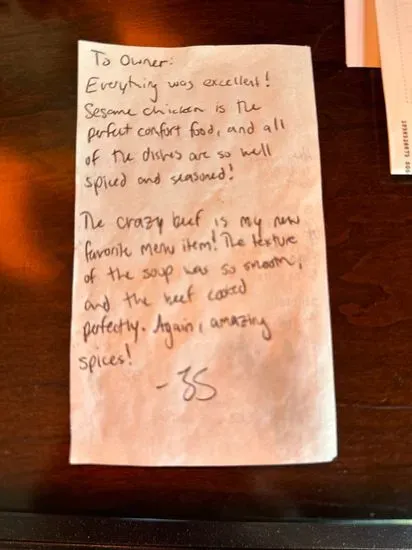 To Owner:
Everything was excellent!
Sesame chicken is the
perfect comfort food, and all
of the dishes are so well
spiced and seasoned!
The crazy beef is my new
favorite menu item! The texture
of the soup was so smooth,
and the beef cooked
perfectly. Again, amazing
spices!